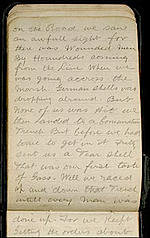 on the Road we saw
an awfull sight for
there was Wounded men
By Houndreds coming
from the line. When we
was going accross the
Marsh German Shells was
dropping around But
none of us was Hit we
then landed to a Comunication
Trench But before we had
come to get in it Fritz
sent us a Tear Shell
that was our first taste
of Gass. Well we raced
up and down that Trench
untill every man was
done up. For we Kept
Getting the orders about